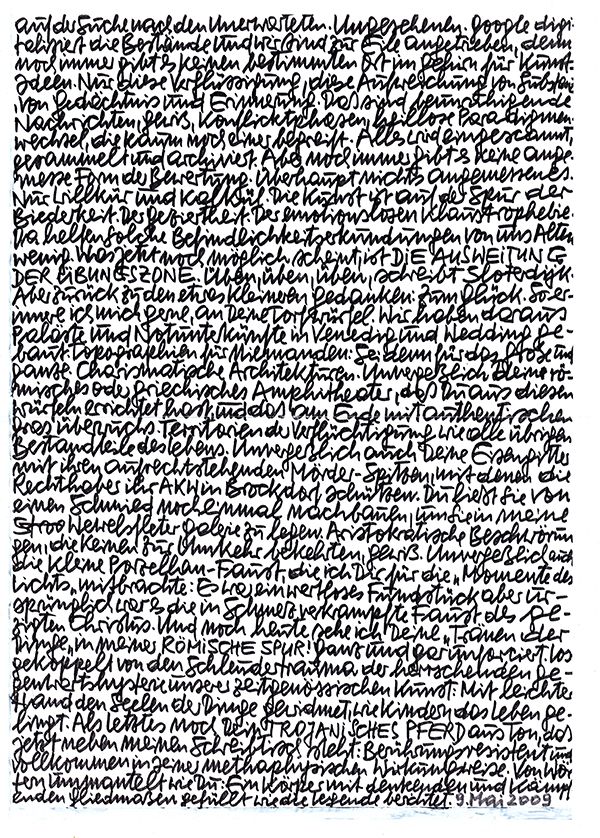 auf der Suche nach den Unerwarteten. Ungesehenen. Google digi-
talisiert die Bestände und wir sind zur Eile angetrieben, denn
noch immer gibt es keinen bestimmten Ort im Gehirn für Kunst-
ideen. Nur diese Verflüssigung, diese Aufweichung von Substanz
von Gedächtnis und Erinnerung. Das sind beunruhigende
Nachrichten, gewiß. Konfliktphasen, heillose Paradigmen-
wechsel, die kaum noch einer begreift. Alles wird eingescannt,
gesammelt und archiviert. Aber noch immer gibt es keine ange-
messe Form der Bewertung. Überhaupt nichts angemessenes.
Nur Willkür und Kalkül. Die Kunst ist auf der Spur der
Biederkeit. Der Geziertheit. Der emotionslosen Klaustrophobie.
Da helfen solche Befindlichkeitserkundungen von uns Alten
wenig. Was jetzt noch möglich scheint ist DIE AUSWEITUNG
DER ÜBUNGSZONE. Üben, üben, üben, schreibt Sloterdijk.
Aber zurück zu den etwas kleineren Gedanken: zum Glück. So er-
innere ich mich gerne, an Deine Torfwürfel. Wir haben daraus
Paläste und Notunterkünfte in Venedig und Wedding ge-
baut. Topographien für Niemanden: Sei denn für das Große und
Ganze. Charismatische Architekturen. Unvergeßlich Deine rö-
misches oder griechisches Amphitheater, das Du aus diesen
Würfeln errichtet hast, und das am Ende mit authentischen
Gras überwuchs. Territorien der Verflüchtigung wie alle übrigen
Bestandteile des Lebens. Unvergeßlich auch Deine Eisengitter
mit ihren aufrechtstehenden Mörder-Spitzen, mit denen die
Rechthaber ihr AKW in Brockdorf schützen. Du ließt sie von
einen Schmied noch einmal nachbauen, um sie in meine
Stroo Wewelsfleter Galerie zu legen. Aristokratische Beschwörun-
gen, die Keinen zur Umkehr bekehrten, gewiß. Unvergeßlich auch
die kleine Porzellan-Faust, die ich Dir für die „Momente des
Lichts" mitbrachte: Etwa ein wertloses Fundstück aber ur-
sprünglich war es die in Schmerz verkrampfte Faust des ge-
geigten Christus. Und noch heute sehe ich Deine „Tränen der
Dinge" in meiner RÖMISCHE SPUR! Ganz und gar unforciert los
gekoppelt von den Schleudertrauma der herrschenden Ge-
genwartshysterie unserer zeitgenössischen Kunst. Mit leichter
Hand den Seelen der Dinge gewidmet, wie Kindern das Leben ge-
lingt. Als letztes noch Dein TROJANISCHES PFERD aus Ton, das
jetzt neben meinen Schreibtisch steht. Berührungsresistent und
vollkommen in seiner methaphysischen Wirkungsweise. Von Wör-
tern ummantelt wie Du: Ein Körper mit denkenden und kämpf-
enden Gliedmaßen gefüllt wie die Legende berichtet. 9. Mai 2009